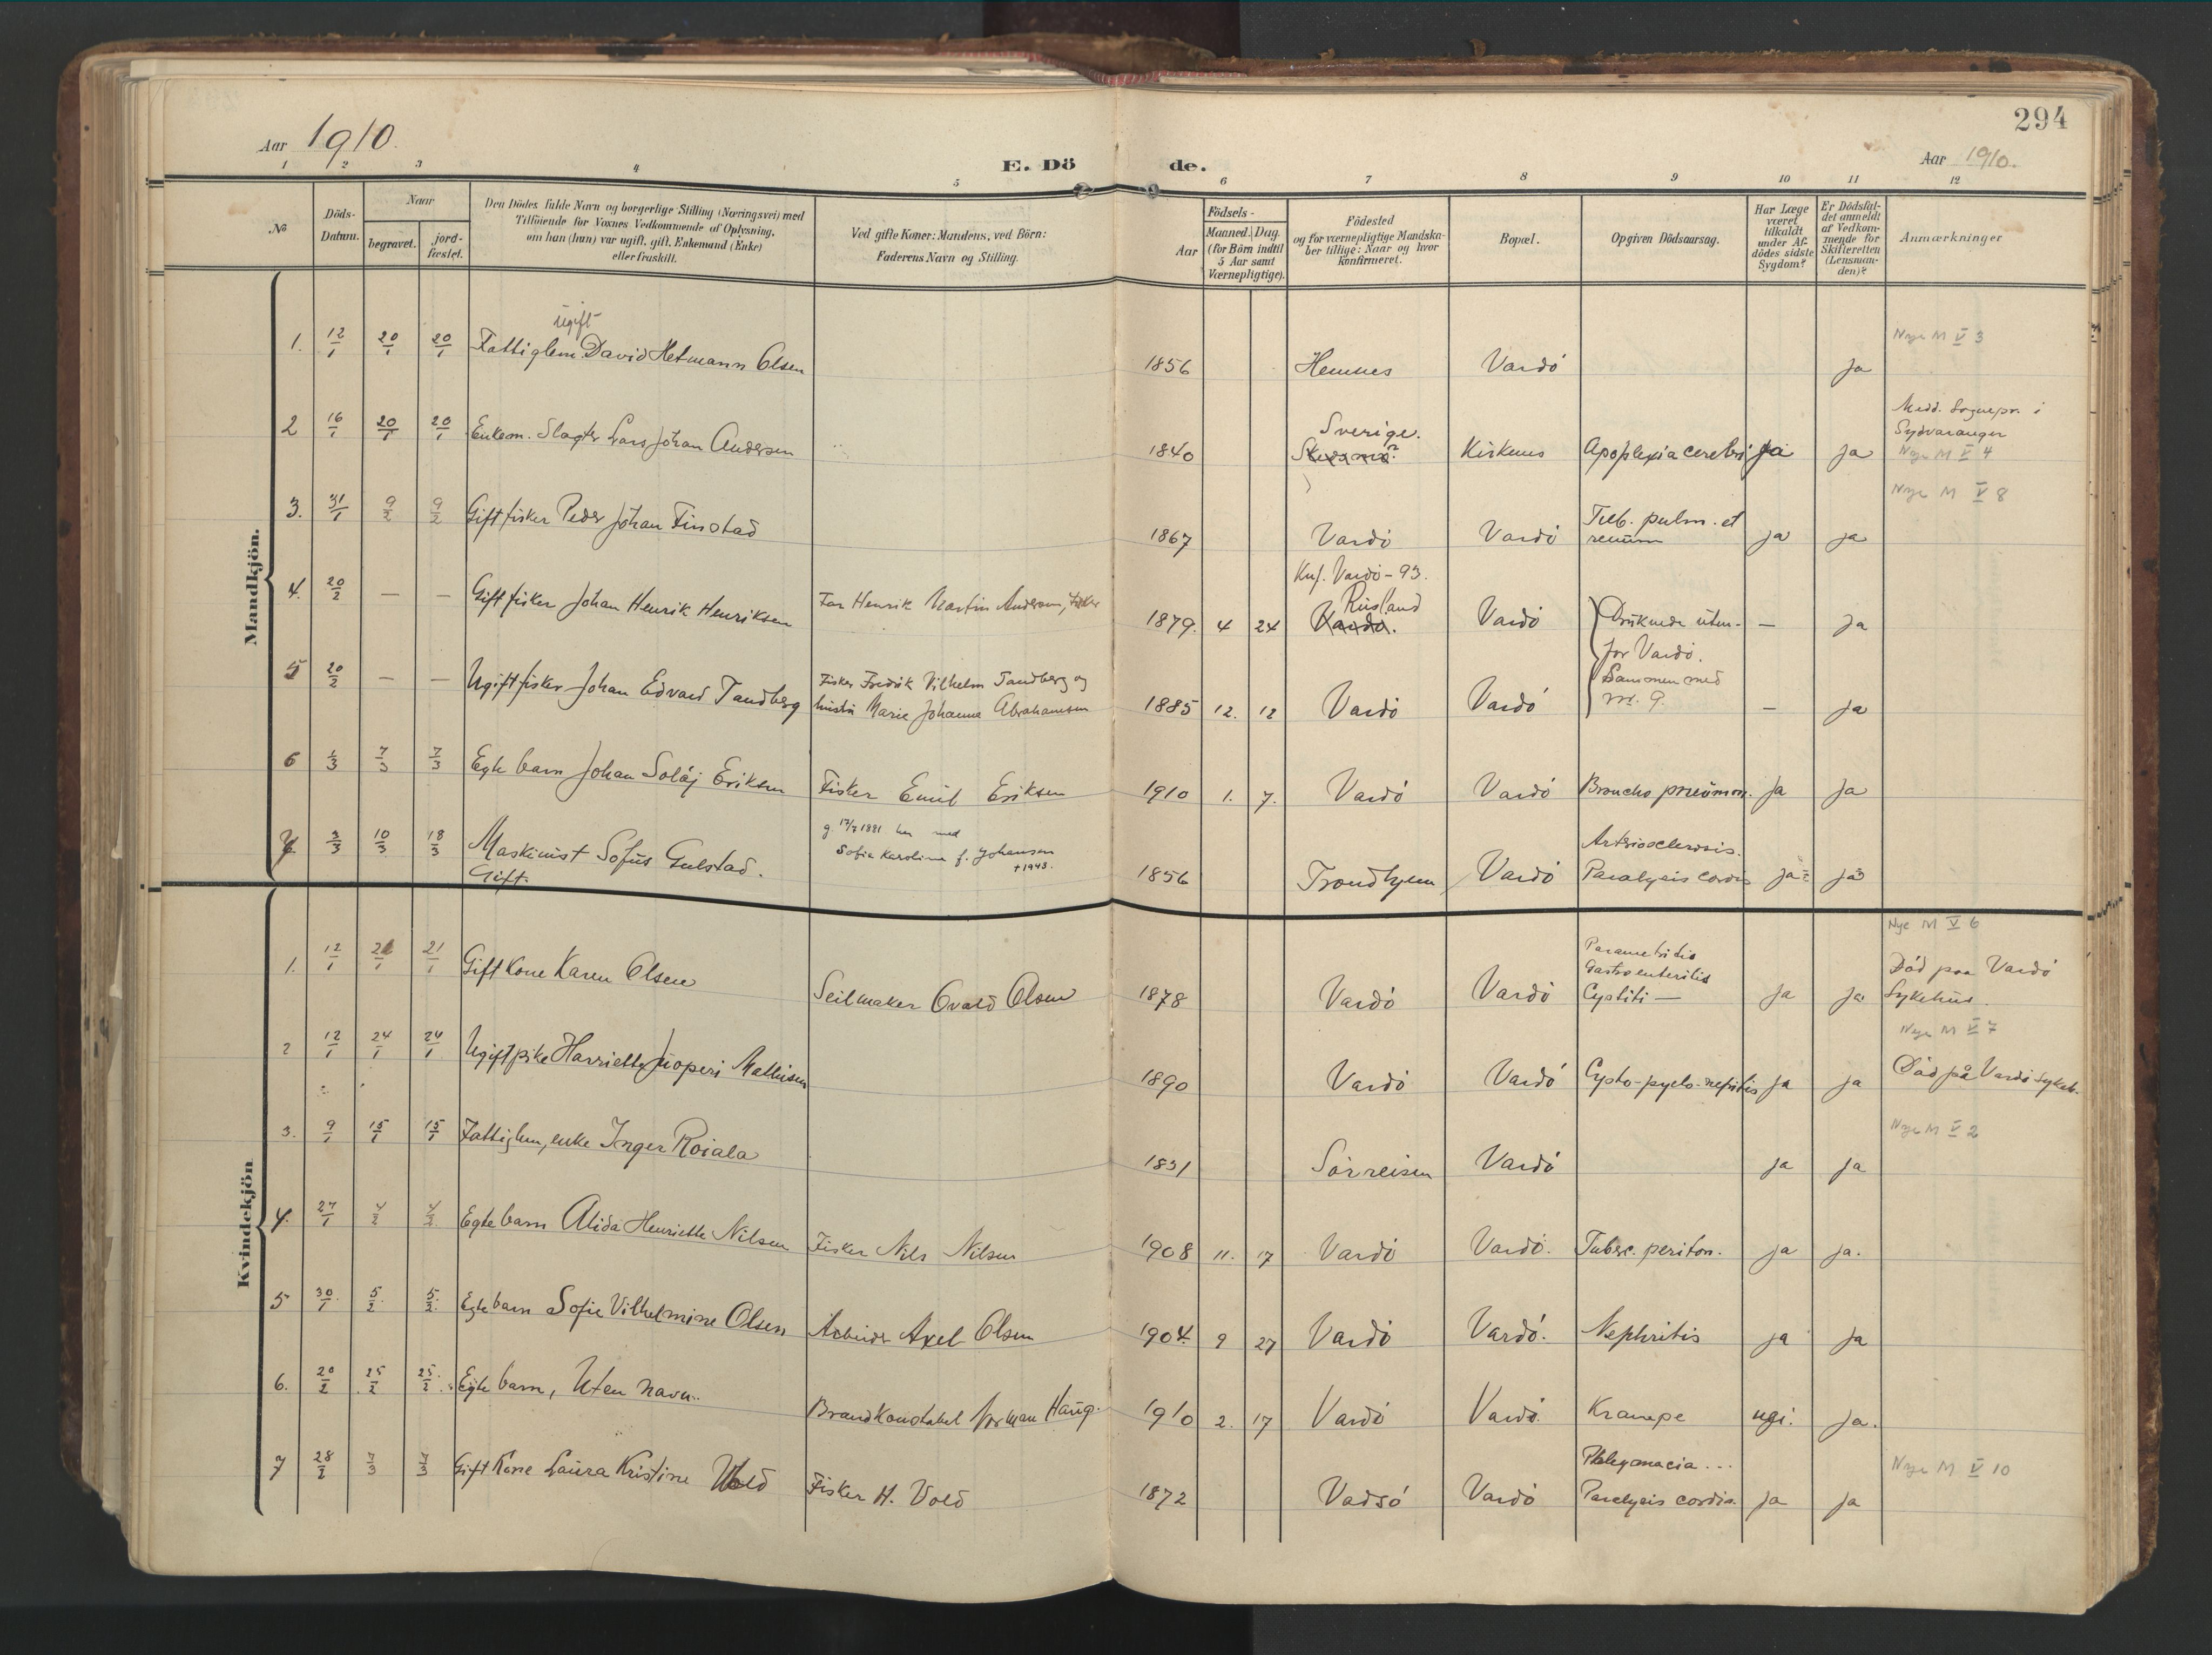 294
Aar 1910.
E. Dö de.
Aar 1910.
1 2 3 4 5 6 7 8 9 10 11 12
No
Döds-
Datum.
Naar
begravet.
jord-
fæstet.
Den Dödes fulde Navn og borgerlige Stilling (Næringsvei) med
Tilföiende for Voxnes Vedkommende af Oplysning,
om han (hun) var ugift, gift, Enkemand (Enke)
eller fraskilt.
Ved gifte Koner: Mandens, ved Börn:
Faderens Navn og Stilling.
Födsels-
Aar
Maaned. Dag.
(for Börn indtil
5 Aar samt
Værnepligtige).
Födested
og for værnepligtige Mandska-
ber tillige: Naar og hvor
konfirmeret.
Bopæl.
Opgiven Dödsaarsag.
Har Læge
været
tilkaldt
under Af-
dödes sidste
Sygdom?
Er Dödsfal-
det anmeldt
af Vedkom-
mende for
Skifteretten
(Lensman-
den)?
Anmærkninger
Mandkjön.
ugift
1. 12/1 20/1 20/1 Fattiglem David Hetmann Olsen 1856 Hemnes Vardö ja Nye M V 3
2 16/1 20/1 20/1 Enkem. Slagter Lars Johan Andersen 1840 Sverige. Kirkenes Apoplexia cerebri ja ja
Medd. Sognepr. i
Sydvaranger
Nye M V 4
3. 31/1 9/2 9/2 Gift fisker Peder Johan Finstad 1867 Vardö Vardö Tub. pulm. et
renum ja ja Nye M V 8
4. 20/2 — — Gift fisker Johan Henrik Henriksen Far Henrik Martin Andersen, fisker 1879. 4 24
Knf. Vardö - 93.
Rusland
Vardö. Vardö Druknede uten- — ja
for Vardö.
Sammen med
nr. 9.
5 20/2 — — Ugift fisker Johan Edvard Tandberg
Fisker Fredrik Vilhelm Tandberg og
hustru Marie Johanne Abrahamsen 1885 12. 12 Vardö Vardö — ja
6 1/3 7/3 7/3 Egte barn Johan Soløj Eriksen Fisker Emil Eriksen 1910 1. 7. Vardö Vardö Broncho pneumon. ja ja
7 3/3 10/3 18/3 Maskinist Sofus Gulstad.
Gift.
g. 17/7 1881 her med
Sofie Karoline f. Johansen
+1943.
1856 Trondhjem Vardö
Artriosclerosis.
Paralysis cordis ja ja
Kvindekjön
1. 12/1 21/1 21/1 Gift kone Karen Olsen Seilmaker Ovald Olsen 1878 Vardö Vardö
Parametritis
Gastroenteritis
Cystiti — ja ja
Nye M V 6
Död paa Vardö
Sykehus.
2 12/1 24/1 24/1 Ugift pike Harriette Juoperi Mathisen 1890 Vardö Vardö Cysto-pyelo-nefritis ja ja
Nye M V 7
Död på Vardö sykeh.
3. 9/1 15/1 15/1 Fattiglem, enke Inger Roiala 1831 Sörreisen Vardö ja ja Nye M V 2
4. 27/1 4/2 4/2 Egte barn Alida Henriette Nilsen Fisker Nils Nilsen 1908 11. 17 Vardö Vardö. Tuberc. periton. ja ja.
5 30/1 5/2 5/2 Egte barn Sofie Vilhelmine Olsen Arbeider Axel Olsen 1904. 9 27 Vardö Vardö. Nephritis ja ja
6. 20/2 25/2 25/2 Egte barn, Uten navn. Brandkonstabel Norman Haug. 1910 2. 17 Vardö Vardö. Krampe nei. ja.
7 28/2 7/3 7/3 Gift kone Laura Kristine Vold Fisker H. Vold 1872 Vadsö Vardö
Phlegmacia ...
Paralysis cordis. ja ja Nye M V 10